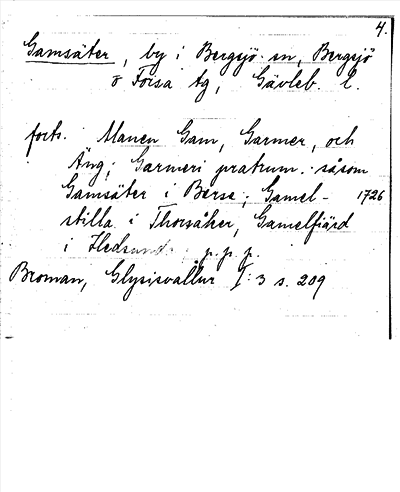 4.
Gamsäter, by i Bergsjö sn, Bergsjö
o Forsa tg, Gävleb. l.
forts. Manen Gam, Garmer, och
Äng; Garmeri pratum. såsom
Gamsäter i Berse; Gamel- 1726
stilla i Thorsåker, Gamelfiärd
i Hedsund. p.p.p.
Broman, Glysisvallur I: 3 s. 209